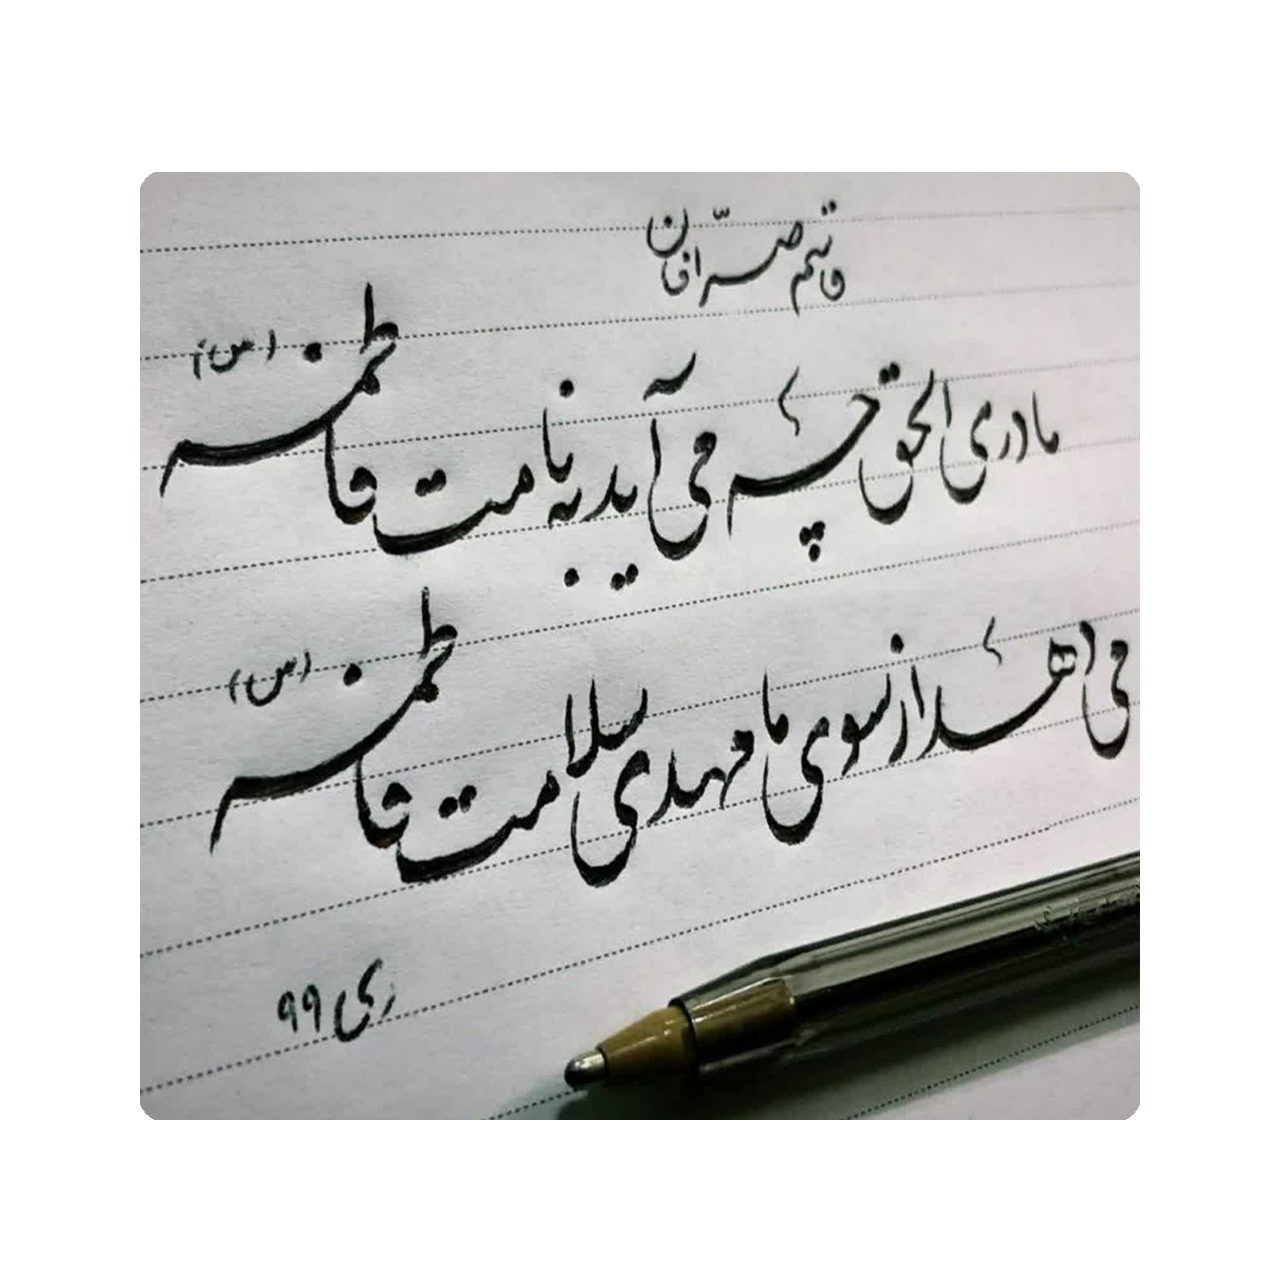 قاسم صرّافان
مادری الحق چه می آید به نامت فاطمه (س)
می دهد از سوی ما مهدی سلامت فاطمه (س)
۹۹